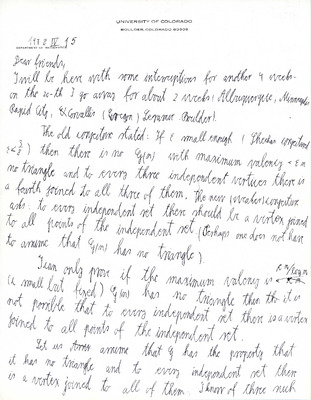 UNIVERSITY OF COLORADO
BOULDER, COLORADO 80309
DEPARTMENT OF MATHEMATICS
15
Dear friends,
I will be here with some interruptions for another 4 weeks.
on the 20-th I go away for about 2 weeks (Albuquerque, Minneapolis
Rapid City, Corvallis (Oregon) Boulder).
The old conjecture stated: If ε small enough (conjectured
ε < ) then there is no G(n) with maximum valency < ε n
no triangle and to every three independent vertices there is
a fourth joined to all three of them. The new (weaker) conjecture
asks: to every independent set there should be a vertex joined
to all points of the independent set (Perhaps one does not have
to assume that G(n) has no triangle).
I can only prove if the maximum valency is <
(ε small but fixed) G(n) has no triangle then it is
not possible that to every independent set there is a vertex
joined to all points of the independent set.
Let us assume that G has the property that
it has no triangle and to every independent set there
is a vertex joined to all of them. I know of three such